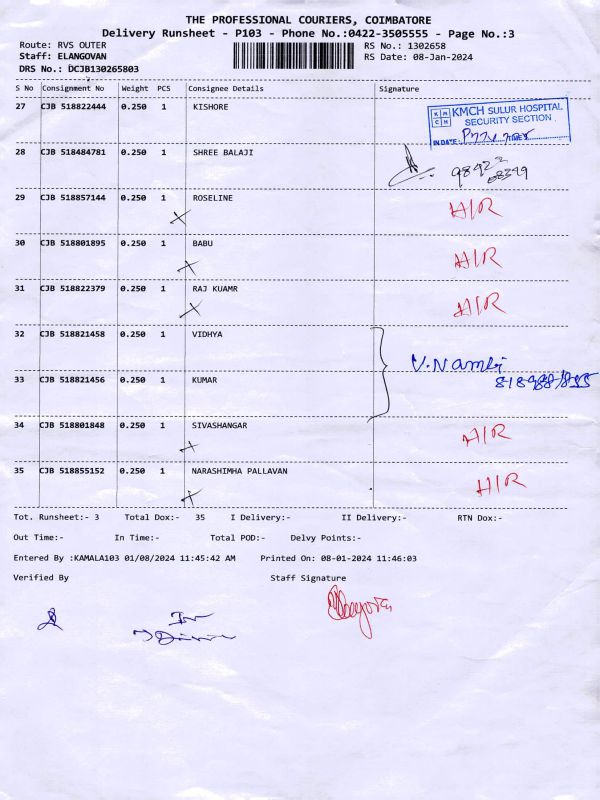 THE PROFESSIONAL COURIERS, COIMBATORE
Delivery Runsheet - P103 - Phone No.:0422-3505555 - Page No.:3
Route: RVS OUTER RS No.: 1302658
Staff: ELANGOVAN RS Date: 08-Jan-2024
DRS No.: DCJB130265803
S No Consignment No Weight PCS Consignee Details Signature
27 CJB 518822444 0.250 1 KISHORE
KMCH SULUR HOSPITAL
SECURITY SECTION
IN DATE:
28 CJB 518484781 0.250 1 SHREE BALAJI
29 CJB 518857144 0.250 1 ROSELINE H/R
30 CJB 518801895 0.250 1 BABU H/R
31 CJB 518822379 0.250 1 RAJ KUAMR H/R
32 CJB 518821458 0.250 1 VIDHYA
V.Nambi
33 CJB 518821456 0.250 1 KUMAR
34 CJB 518801848 0.250 1 SIVASHANGAR H/R
35 CJB 518855152 0.250 1 NARASHIMHA PALLAVAN H/R
Tot. Runsheet:- 3 Total Dox:- 35 I Delivery:- II Delivery:- RTN Dox:-
Out Time:- In Time:- Total POD:- Delvy Points:-
Entered By :KAMALA103 01/08/2024 11:45:42 AM Printed On: 08-01-2024 11:46:03
Verified By Staff Signature